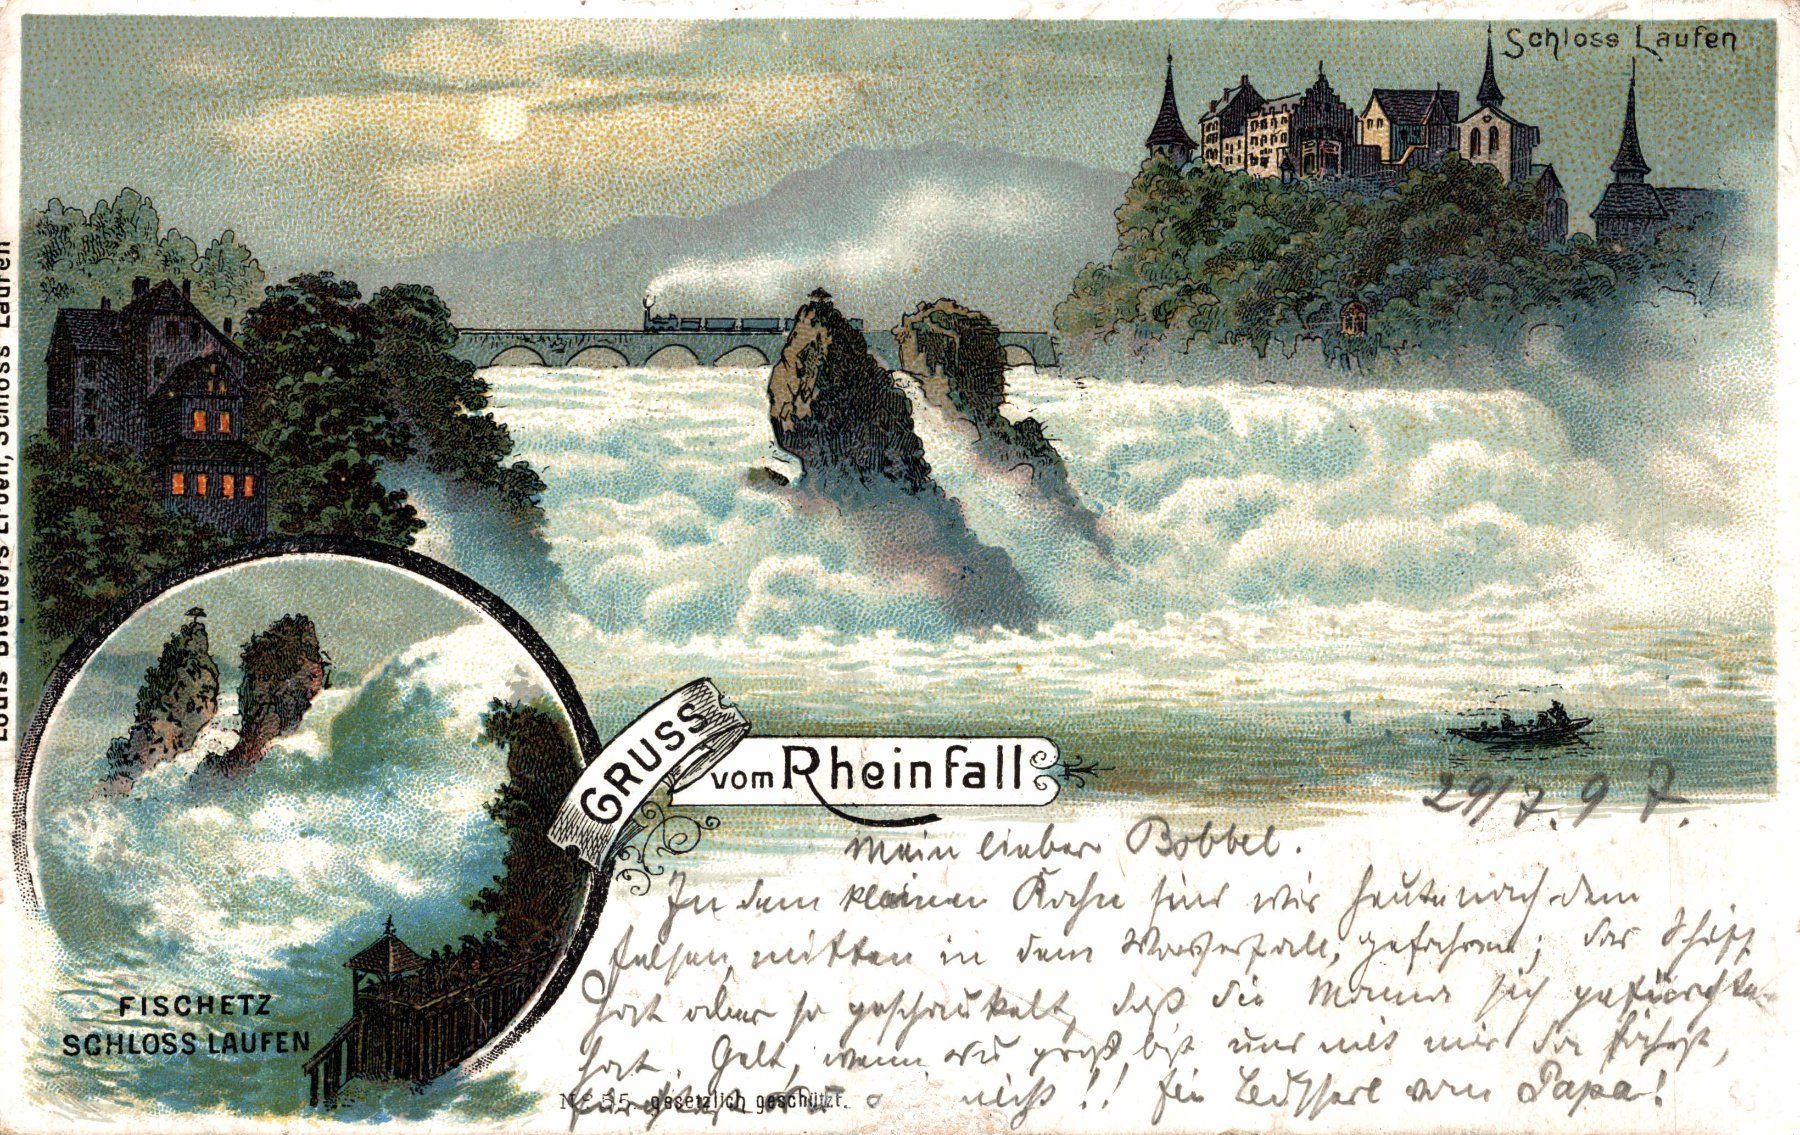 Schloss Laufen
Louis Bleulers Erben, Schloss Laufen
GRUSS
vom Rheinfall
FISCHETZ
SCHLOSS LAUFEN
29/7.97.
Mein lieber Bobbel.
In dem kleinen Kahn sind wir heute nach dem
Felsen, mitten in dem Wasserfall, gefahren; das Schiff
hat aber so geschaukelt, daß die Mama sich gefürchtet
hat. Gelt, wenn du groß bist und mit mir da fährst,
fürchtest nicht!! Ein Busserl von Papa!
No 55. gesetzlich geschützt.